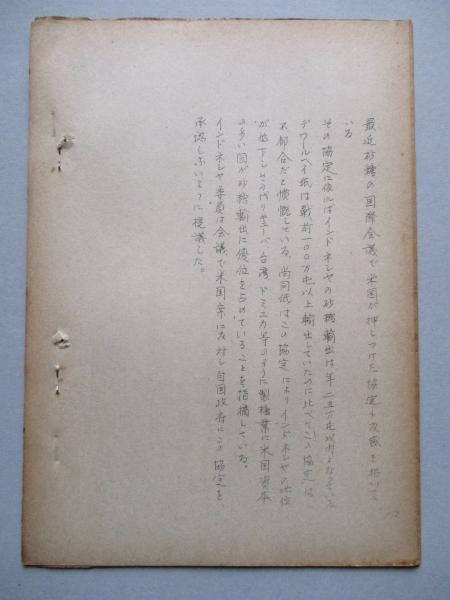 最近砂糖の国際会議で米国が押しつけた協定も反感を招いて
いる
その協定に依ればインドネシヤの砂糖輸出は年二五万屯以内となっている
デワールヘイ紙は戦前一〇〇万屯以上輸出していたのに比べてこの協定は
不都合だと憤慨している、尚同紙はこの協定によりインドネシヤの地位
が低下しその代りキューバ、台湾、ドミニカ等のように製糖業に米国資本
の多い国が砂糖輸出に優位を占めていることを指摘している。
インドネシヤ委員は会議で米国案に反対し自国政府にこの協定を
承認しないように提議した。